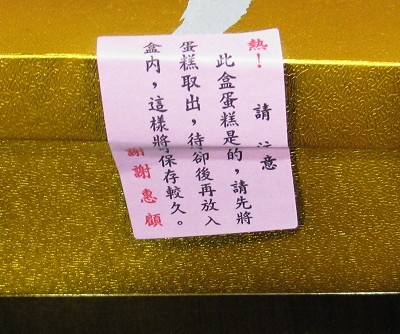 熱！ 請注意
此盒蛋糕是的，請先將
蛋糕取出，待卻後再放入
盒內，這樣將保存較久。
謝謝惠顧